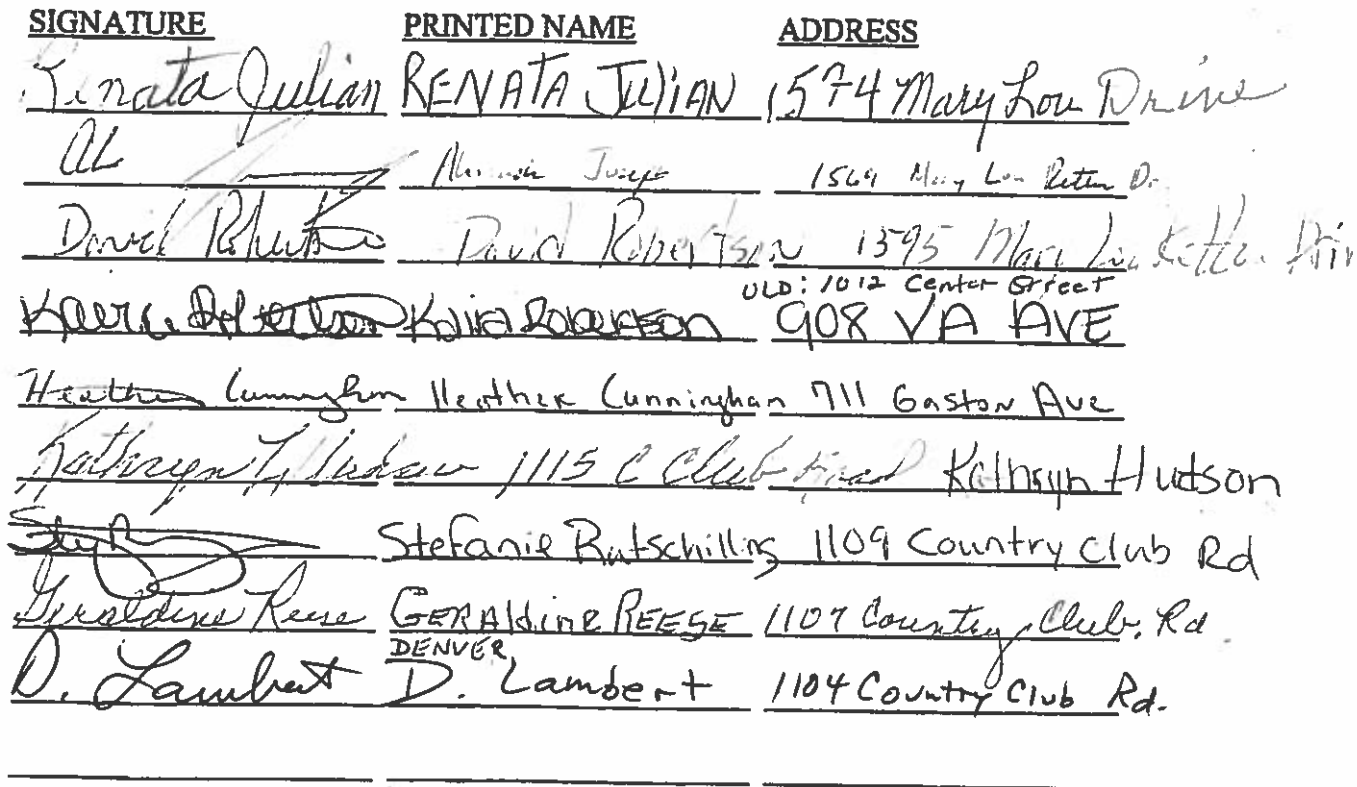 SIGNATURE PRINTED NAME ADDRESS
Renata Julian RENATA JULIAN 1574 Mary Lou Drive
1569 Mary Lou Retton Dr.
David Robertson David Robertson 1595 Mary Lou Retton Driv
OLD: 1012 Center Street
Kaira Robertson Kaira Robertson 908 VA AVE
Heather Cunningham Heather Cunningham 711 Gaston Ave
Kathryn Hudson 1115 C Club Road Kathryn Hudson
Stefanie Rutschilling 1109 Country Club Rd
Geraldine Reese GERAldine REESE 1107 Country Club Rd
DENVER
D. Lambert D. Lambert 1104 Country Club Rd.